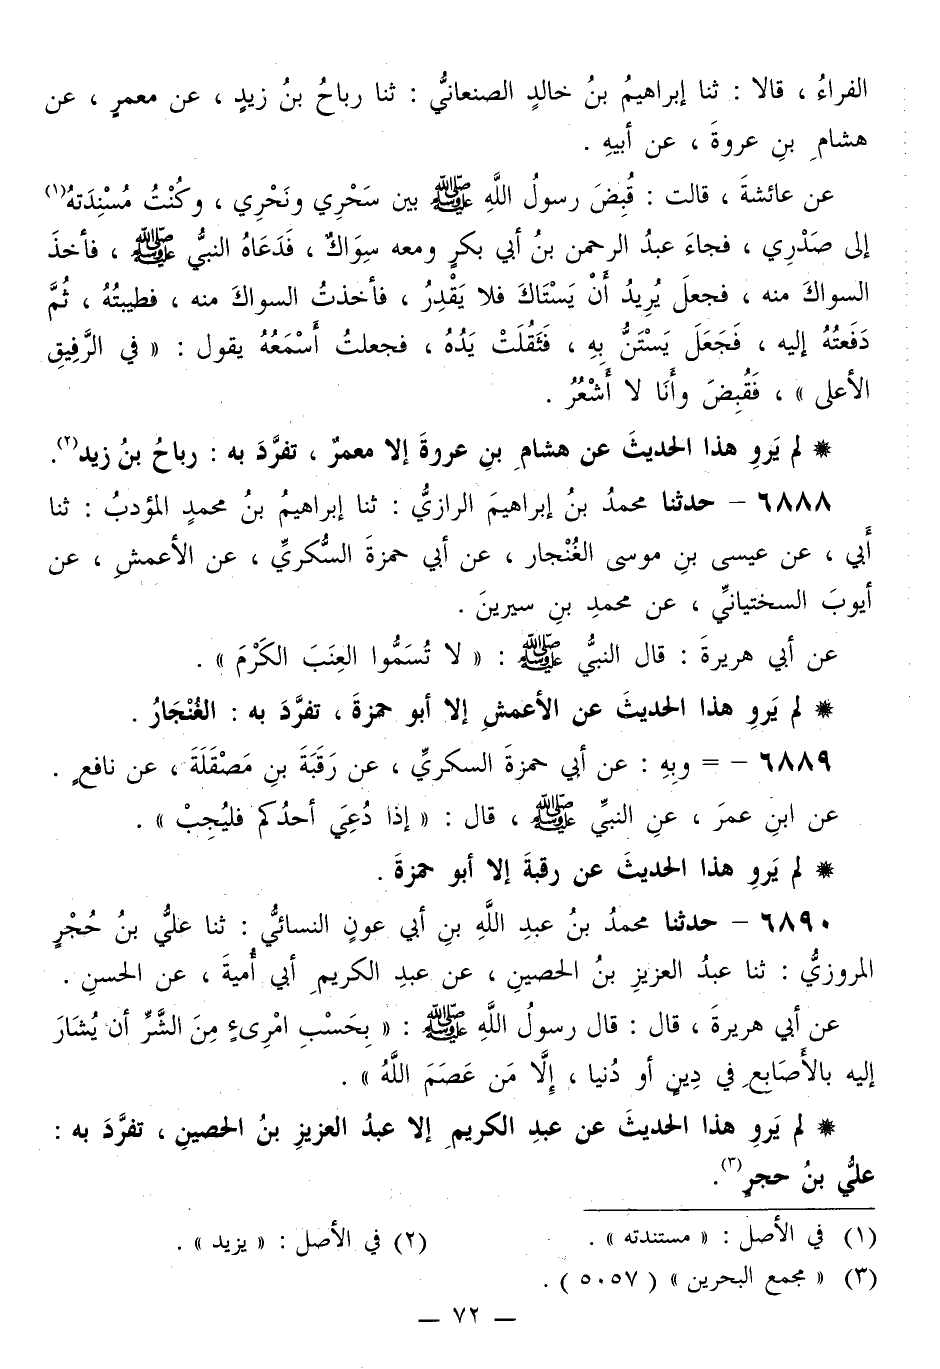 الفراءُ ، قالا : ثنا إبراهيمُ بنُ خالدٍ الصنعانيُّ : ثنا رباحُ بنُ زيدٍ ، عن معمرٍ ، عن
هشامِ بنِ عروةَ ، عن أبيهِ .
عن عائشةَ ، قالت : قُبِضَ رسولُ اللَّهِ ﷺ بين سَحْرِي ونَحْرِي ، وكُنْتُ مُسْنِدَتهُ(١)
إلى صَدْرِي ، فجاءَ عبدُ الرحمن بنُ أبي بكرٍ ومعه سِوَاكٌ ، فَدَعَاهُ النبيُّ ﷺ ، فأخذَ
السواكَ منه ، فجعلَ يُرِيدُ أَنْ يَسْتَاكَ فلا يَقْدِرُ ، فأخذتُ السواكَ منه ، فطيبتُهُ ، ثُمَّ
دَفَعتُهُ إليه ، فَجَعَلَ يَسْتَنُّ بِهِ ، فَثَقُلَتْ يَدُهُ ، فجعلتُ أَسْمَعُهُ يقول : « في الرَّفِيقِ
الأعلى » ، فَقُبِضَ وأَنَا لا أَشْعُرُ .
* لم يَروِ هذا الحديثَ عن هشامِ بنِ عروةَ إلا معمرٌ ، تفرَّدَ به : رباحُ بنُ زيد(٢).
٦٨٨٨ - حدثنا محمدُ بنُ إبراهيمَ الرازيُّ : ثنا إبراهيمُ بنُ محمدٍ المؤدبُ : ثنا
أَبي ، عن عيسى بنِ موسى الغُنْجار ، عن أبي حمزةَ السُّكريِّ ، عن الأعمشِ ، عن
أيوبَ السختيانيِّ ، عن محمدِ بنِ سيرينَ .
عن أبي هريرةَ : قال النبيُّ ﷺ : « لا تُسَمُّوا العِنَبَ الكَرْمَ » .
* لم يَروِ هذا الحديثَ عن الأعمشِ إلا أبو حمزةَ ، تفرَّدَ به : الغُنْجارُ .
٦٨٨٩ - = وبِهِ : عن أبي حمزةَ السكريِّ ، عن رَقَبَةَ بنِ مَصْقَلَةَ ، عن نافعٍ .
عن ابنِ عمرَ ، عنِ النبيِّ ﷺ ، قال : « إذا دُعِيَ أحدُكم فليُجِبْ » .
* لم يَروِ هذا الحديثَ عن رقبةَ إلا أبو حمزةَ .
٦٨٩٠ - حدثنا محمدُ بنُ عبدِ اللَّهِ بنِ أبي عونٍ النسائيُّ : ثنا عليُّ بنُ حُجْرٍ
المروزيُّ : ثنا عبدُ العزيزِ بنُ الحصينِ ، عن عبدِ الكريمِ أبي أُميةَ ، عن الحسنِ .
عن أبي هريرةَ ، قال : قال رسولُ اللَّهِ ﷺ : « بِحَسْبِ امْرِىءٍ مِنَ الشَّرِّ أن يُشَارَ
إليه بالأَصَابِعِ في دِينٍ أو دُنيا ، إِلَّا مَن عَصَمَ اللَّهُ » .
* لم يَروِ هذا الحديثَ عن عبدِ الكريمِ إلا عبدُ العزيزِ بنُ الحصينِ ، تفرَّدَ به :
عليُّ بنُ حجرٍ(٣).
(١) في الأصل : « مستندته » . (٢) في الأصل : « يزيد » .
(٣) « مجمع البحرين » ( ٥٠٥٧ ) .
— ٧٢ —